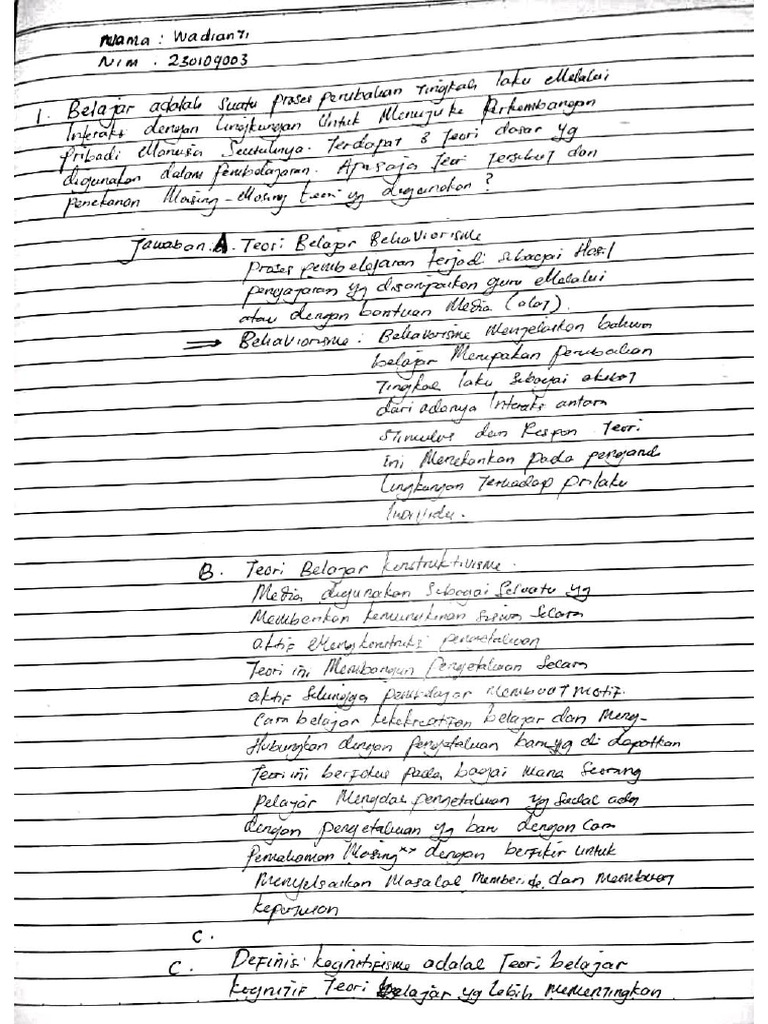 Nama : Wadianti
Nim . 230109003
1. Belajar adalah suatu proses perubahan Tingkah laku Melalui
Interaksi dengan lingkungan Untuk Menuju ke Perkembangan
pribadi Manusia Seutuhnya. Terdapat 3 Teori dasar yg
digunakan dalam pembelajaran. Apa saja Teori Tersebut dan
penekanan Masing-Masing teori yg digunakan ?
Jawaban. A. Teori Belajar Behaviorisme
proses pembelajaran terjadi sebagai Hasil
pengajaran yg disampaikan guru Melalui
atau dengan bantuan Media (alat)
⇒ Behaviorisme : Behaviorisme Menjelaskan bahwa
belajar Merupakan perubahan
Tingkah laku sebagai akibat
dari adanya Interaksi antara
Stimulus dan Respon Teori
ini Menekankan pada pengaruh
lingkungan Terhadap prilaku
Individu.
B. Teori Belajar Konstruktivisme.
Media digunakan sebagai Sesuatu yg
Memberikan kemungkinan siswa Secara
aktif Mengkonstruksi pengetahuan
Teori ini Membangun pengetahuan Secara
aktif Sehingga pembelajar Membuat motif.
Cara belajar belajar dan Meng-
Hubungkan dengan pengetahuan baru yg di dapatkan
Teori ini berfokus pada bagai mana Seorang
pelajar Mengolah pengetahuan yg Sudah ada
dengan pengetahuan yg baru dengan Cara
Pemahaman Masing" dengan berfikir untuk
Menyelsaikan Masalah Memberi ide, dan Membuat
keputusan
C.
C. Definisi kognitifisme adalah Teori belajar
kognitif Teori Belajar yg lebih Mementingkan